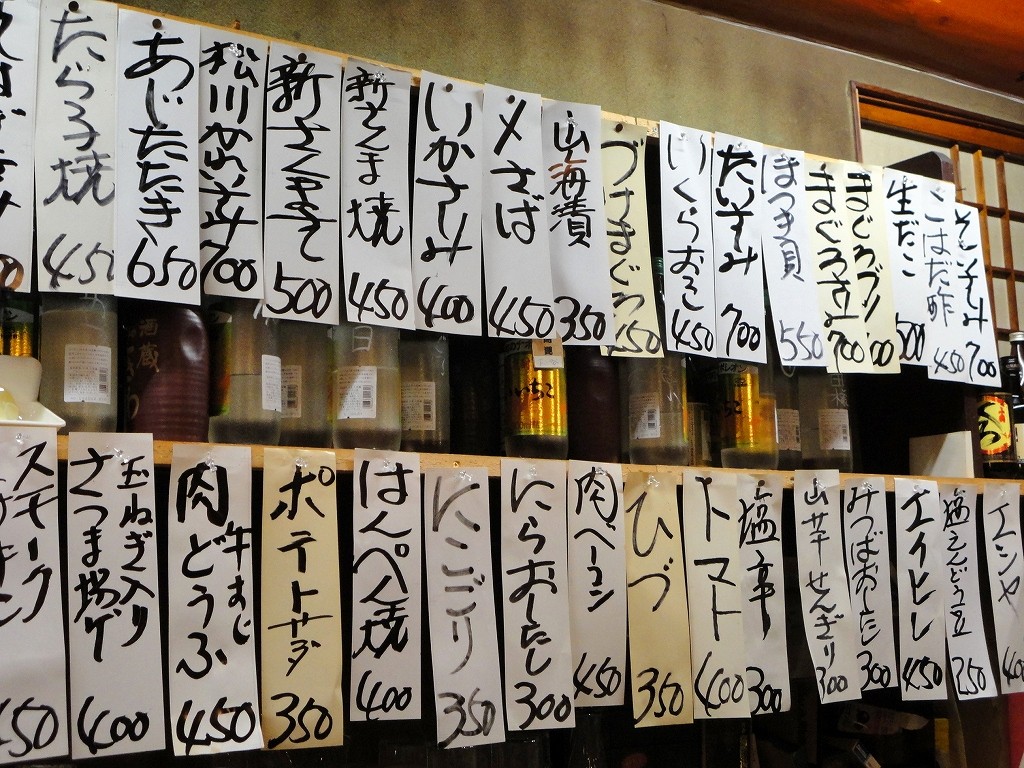 たら子焼 450
あじたたき 650
松川かれいさしみ 700
新さくらます 500
新さんま焼 450
いかさしみ 400
〆さば 450
山海漬 350
づけまぐろ
いくらおろし 450
たいさしみ 700
ほっき貝 550
まぐろ 700
まぐろブツ
生だこ 500
こはだ酢 450
さしみ 700
ステーキ
450
玉ねぎ入り
さつま揚げ 400
牛すじ
肉どうふ 450
ポテトサラダ 350
はんぺん焼 400
にこごり 350
にらおしたし 300
肉ベーコン 450
ひづ 350
トマト 400
塩辛 300
山芋せんぎり 300
みつばおしたし 300
エイヒレ 450
塩えんどう豆 250
エシャ